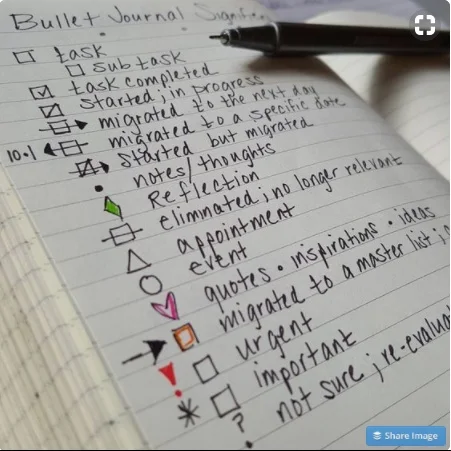 Bullet Journal
task
sub task
task completed
started; in progress
migrated to the next day
10.1 migrated to a specific date
started but migrated
notes/thoughts
Reflection
elimnated; no longer relevant
appointment
event
quotes • inspirations • ideas
migrated to a master list;
urgent
important
? not sure;
Share Image